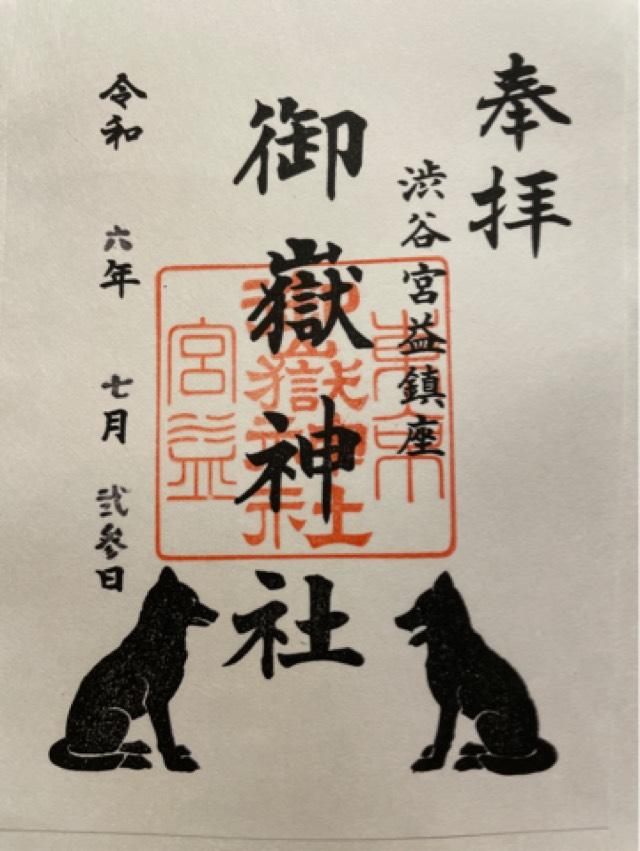 奉拝
渋谷宮益鎮座
御嶽神社
令和 六年 七月 弐参日
東京
御嶽神社
宮益